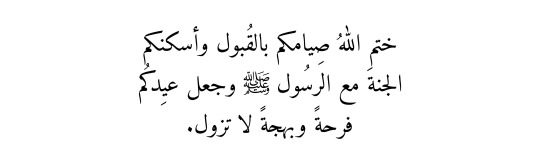 ختم اللهُ صِيامكم بالقُبول وأسكنكم
الجنةَ مع الرسُول ﷺ وجعل عيِدكُم
فرحةً وبهجةً لا تزول.